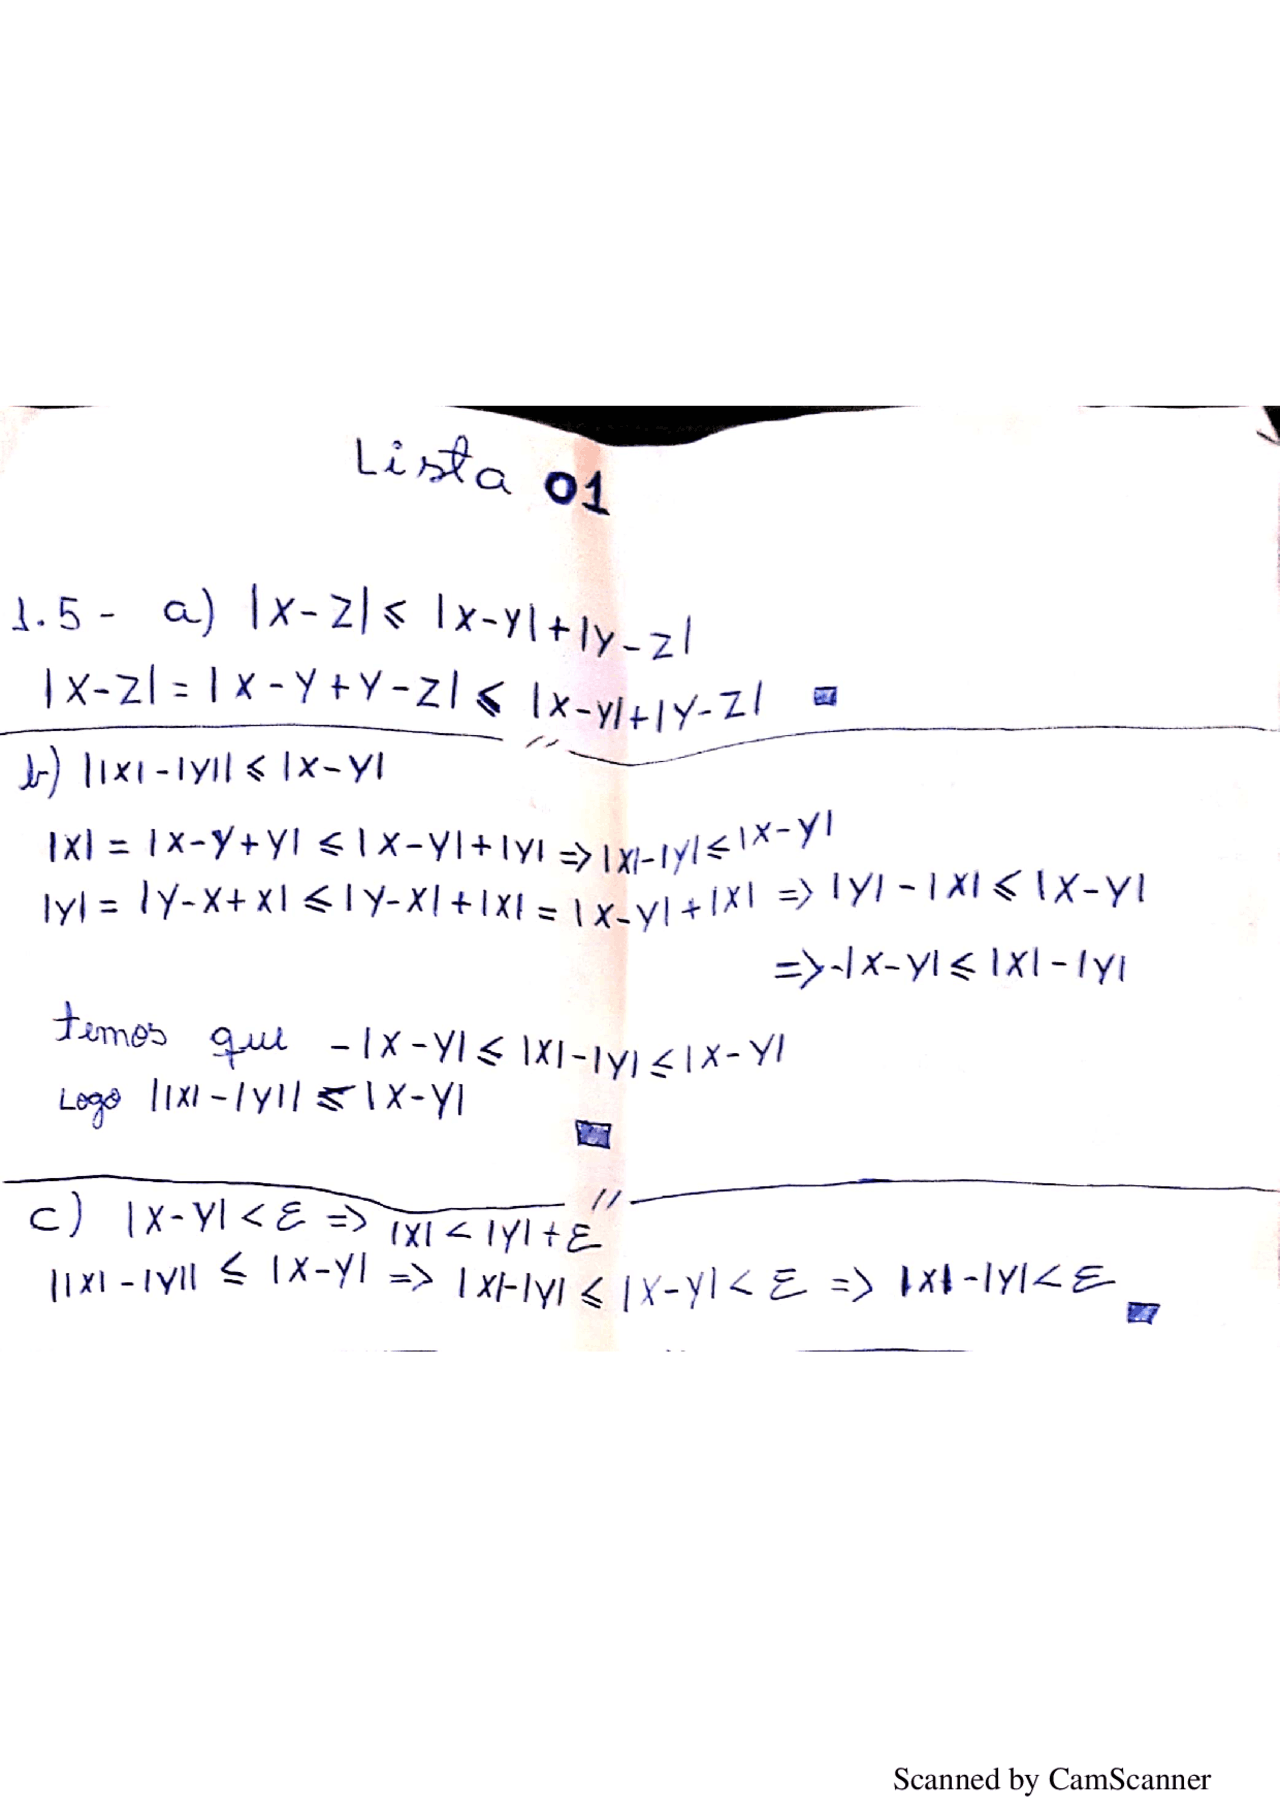 Lista 01
1.5 - a) |x-z| ≤ |x-y|+|y-z|
|x-z| = |x-y+y-z| ≤ |x-y|+|y-z| ■
//
b) ||x|-|y|| ≤ |x-y|
|x| = |x-y+y| ≤ |x-y|+|y| => |x|-|y| ≤ |x-y|
|y| = |y-x+x| ≤ |y-x|+|x| = |x-y|+|x| => |y|-|x| ≤ |x-y|
=> -|x-y| ≤ |x|-|y|
temos que -|x-y| ≤ |x|-|y| ≤ |x-y|
Logo ||x|-|y|| ≤ |x-y|
■
//
c) |x-y| < ε => |x| < |y|+ε
||x|-|y|| ≤ |x-y| => |x|-|y| ≤ |x-y| < ε => |x|-|y| < ε ■
Scanned by CamScanner